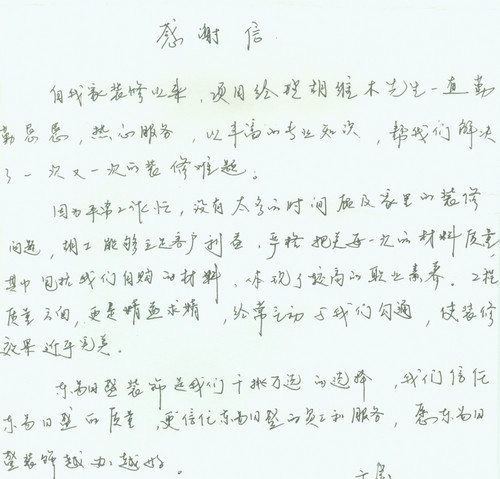 感谢信
自我家装修以来，项目经理胡维木先生一直勤
勤恳恳，热心服务，以丰富的专业知识，帮我们解决
了一次又一次的装修难题。
因为平常工作忙，没有太多的时间顾及家里的装修
问题，胡工能够立足客户利益，严格把关每一次的材料质量，
其中包括我们自购的材料，体现了较高的职业素养。工程
质量方面，更是精益求精，经常主动与我们沟通，使装修
效果近乎完美。
东易日盛装饰是我们千挑万选的选择，我们信任
东易日盛的质量，更信任东易日盛的员工和服务，愿东易日
盛装饰越办越好。